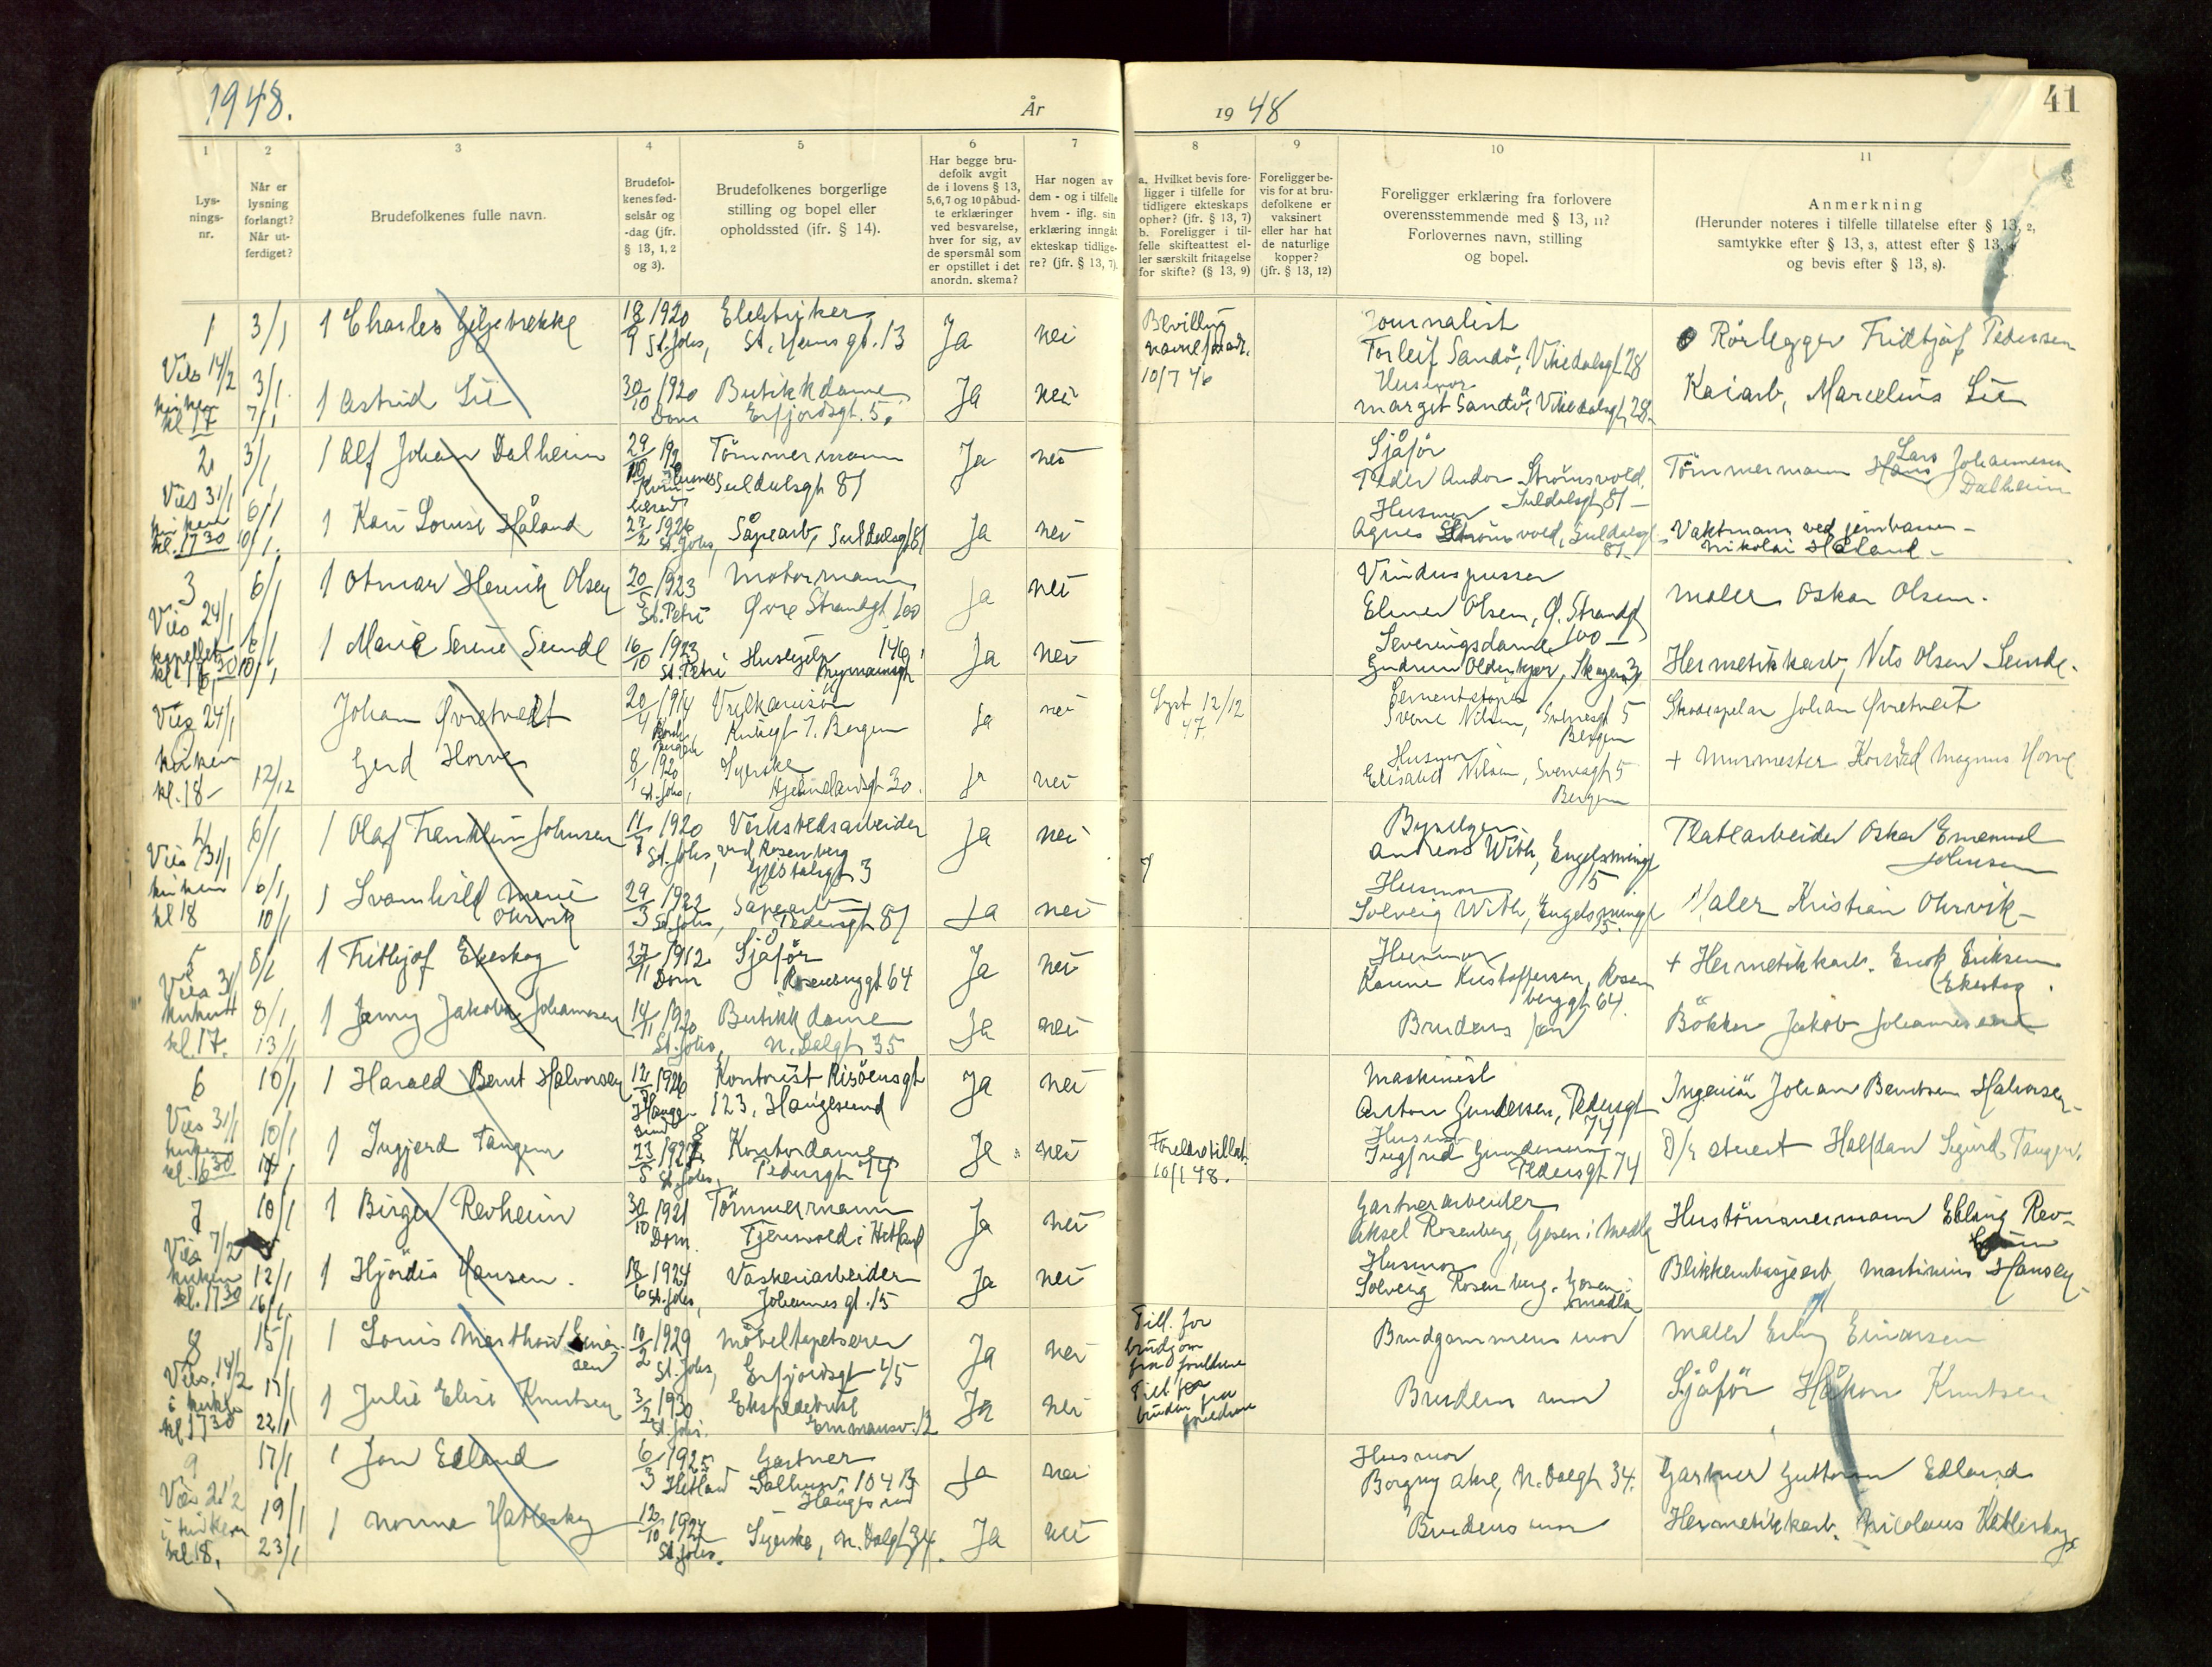 1948.
År
1948
41
1
2
3
4
5
6
7
8
9
10
11
Lys-
nings-
nr.
Når er
lysning
forlangt?
Når ut-
ferdiget?
Brudefolkenes fulle navn.
Brudefol-
kenes fød-
selsår og
-dag (jfr.
§ 13, 1, 2
og 3).
Brudefolkenes borgerlige
stilling og bopel eller
opholdssted (jfr. § 14).
Har begge bru-
defolk avgit
de i lovens § 13,
5,6,7 og 10 påbud-
te erklæringer
ved besvarelse,
hver for sig, av
de spørsmål som
er opstillet i det
anordn. skema?
Har nogen av
dem - og i tilfelle
hvem - iflg. sin
erklæring inngåt
ekteskap tidlige-
re? (jfr. § 13, 7).
a. Hvilket bevis fore-
ligger i tilfelle for
tidligere ekteskaps
ophør? (jfr. § 13, 7)
b. Foreligger i til-
felle skifteattest el-
ler særskilt fritagelse
for skifte? (§ 13, 9)
Foreligger be-
vis for at bru-
defolkene er
vaksinert
eller har hat
de naturlige
kopper?
(jfr. § 13, 12)
Foreligger erklæring fra forlovere
overensstemmende med § 13, 11?
Forlovernes navn, stilling
og bopel.
Anmerkning
(Herunder noteres i tilfelle tillatelse efter § 13, 2,
samtykke efter § 13, 3, attest efter § 13, 4
og bevis efter § 13, 8).
1 3/1 1 Charles Giljebrekke 18/9 1920 Elektriker Ja nei
St. Johs, St. Hansgt. 13
Bevilling
navneforandr.
10/7 46
Journalist
Torleif Sandö, Vikedalsgt 28
Rörlegger Fridtjof Pedersen
Vies 14/2
kirken
kl 17
3/1
7/1
1 Astrid Lie 30/10 1920 Butikkdame Ja nei
Dom Erfjordsgt. 5.
Husmor
Margit Sandö, Vikedalsgt 28.
Kaiarb, Marcelius Lie
2 3/1 1 Alf Johan Dalheim 29/10 Tömmermann Ja nei
Suldalsgt 81
Sjåfør
Peder Andor Strömsvold,
Suldalsgt 81 -
Tömmermann Lars Johannesen
Dalheim
Vies 31/1
kirken
kl. 17 30
6/1
10/1.
1 Kari Louise Håland 27/2 1926 Såpearb, Suldalsgt 81 Ja nei
St. Johs,
Husmor
Agnes Strömsvold, Suldalsgt
81 -
Vaktmann ved jernbanen -
Nikolai Håland -
3 6/1 1 Otmar Henrik Olsen 20/5 1923 Motormann Ja nei
St. Petri Øvre Strandgt 100
Vinduspusser
Elmer Olsen, Ø. Strandgt
100 -
Maler Oskar Olsen.
Vies 24/1
kapellet
6/1
10/1
1 Marie Serine Sunde 16/10 1923 Hushjelp 146 Ja nei
St. Petri Nymansgt
Serveringsdame
Gudrun Oldenkjær, Skagen 3
Hermetikkarb, Nils Olsen Sunde.
Vies 24/1
kirken
kl. 18 -
Johan Øvretveit 20/4 1914 Ja nei
7. Bergen
Lyst 12/12
47.
Sverre Nilsen, Sverresgt 5
Bergen
Skodespelar Johan Øvretveit
12/12 Gerd Horve 8/1 1920 Syerske Ja nei
St. Johs, Hjelmelandsgt 30.
Husmor
Elisabet Nilsen, Sverresgt 5
Bergen
+ Murmester Magnus Horve
4 6/1 1 Olaf Franklin Johnsen 11/7 1920 Verkstedsarbeider Ja nei
St. Johs, ved Rosenberg
Gjesdalsgt 3
Byselger
Andreas With, Engelsmingt
5.
Platearbeider Oskar Emanuel
Johnsen
Vies 31/1
kirken
kl 18
6/1
10/1
1 Svanhild Marie 29/3 1922 Såpearb Ja nei
Ohrvik St. Johs, Pedersgt 81
Husmor
Solveig With, Engelsmingt
5.
Maler Kristian Ohrvik -
5 8/1 1 Frithjof Ekeskog 27/11 1912 Sjåför Ja nei
Dom Rosenberggt 64
Husmor
Kristoffersen, Rosen
berggt 64.
+ Hermetikkarb. Enok Eriksen
Ekeskog.
Vies 31/1
kirken
kl. 17.
8/1
13/1
1 Jenny Jakobe Johannesen 14/11 1920 Butikkdame Ja nei
St. Johs, N. Dalgt 35
Brudens far
Bökker Jakob Johannesen
6 10/1 1 Harald Bernt Halvorsen 12/5 1926 Kontorist Risöensgt Ja nei
Haugesund 123, Haugesund
Maskinist
Anton Gundersen, Pedersgt
74
Ingeniör Johan Berntsen Halvorsen
Vies 31/1
kirken
kl. 16 30
10/1
1 Ingjerd Tangen 23/5 1928 Kontordame Ja nei
St. Johs, Pedersgt 74
Foreldretillat.
10/1 48.
Husmor
Ingfrid Gundersen
Pedersgt 74
D/s stuert Halfdan Sigurd Tangen.
7 10/1 1 Birger Revheim 30/10 1921 Tömmermann Ja nei
Dom. Tjensvold i Hetland
Gartnerarbeider
Aksel Rosenberg, Gosen i Madla
Hustömmermann Elling Rev-
heim
Vies 7/2
kirken
kl. 17 30
12/1
16/1
1 Hjördis Hansen. 18/6 1924 Vaskeriarbeider Ja nei
St. Johs, Johannesgt. 15
Husmor
Solveig Rosenberg, Gosen i
Madla
Blikkemballasjearb Martinius Hansen
8 15/1 1 Louis Marthon Einar-
sen 10/2 1929 Möbeltapetserer Ja nei
St. Johs, Erfjordsgt 45
Till. for
brudgom
fra foreldrene
Brudgommens mor
Maler Erling Einarsen
Vies. 14/2
i kirken
kl 17 30
17/1
22/1
1 Julie Elise Knutsen 3/2 1930 Ekspeditrise Ja nei
St. Johs. Emmausv. 12
Till for
bruden fra
foreldrene
Brudens mor
Sjåför Håkon Knutsen
9 17/1 1 Jon Edland 6/3 1925 Gartner Ja nei
Hetland Salhusv. 104 B
Haugesund
Husmor
Borgny Ahre, N. Dalgt 34.
Gartner Guttorm Edland
Vies 21/2
i kirken
kl 18,
19/1
23/1
1 Norma Hatleskog 12/10 1927 Syerske, N. Dalgt 34. Ja nei
St. Johs.
Brudens mor
Hermetikkarb. Nicolaus Hatleskog